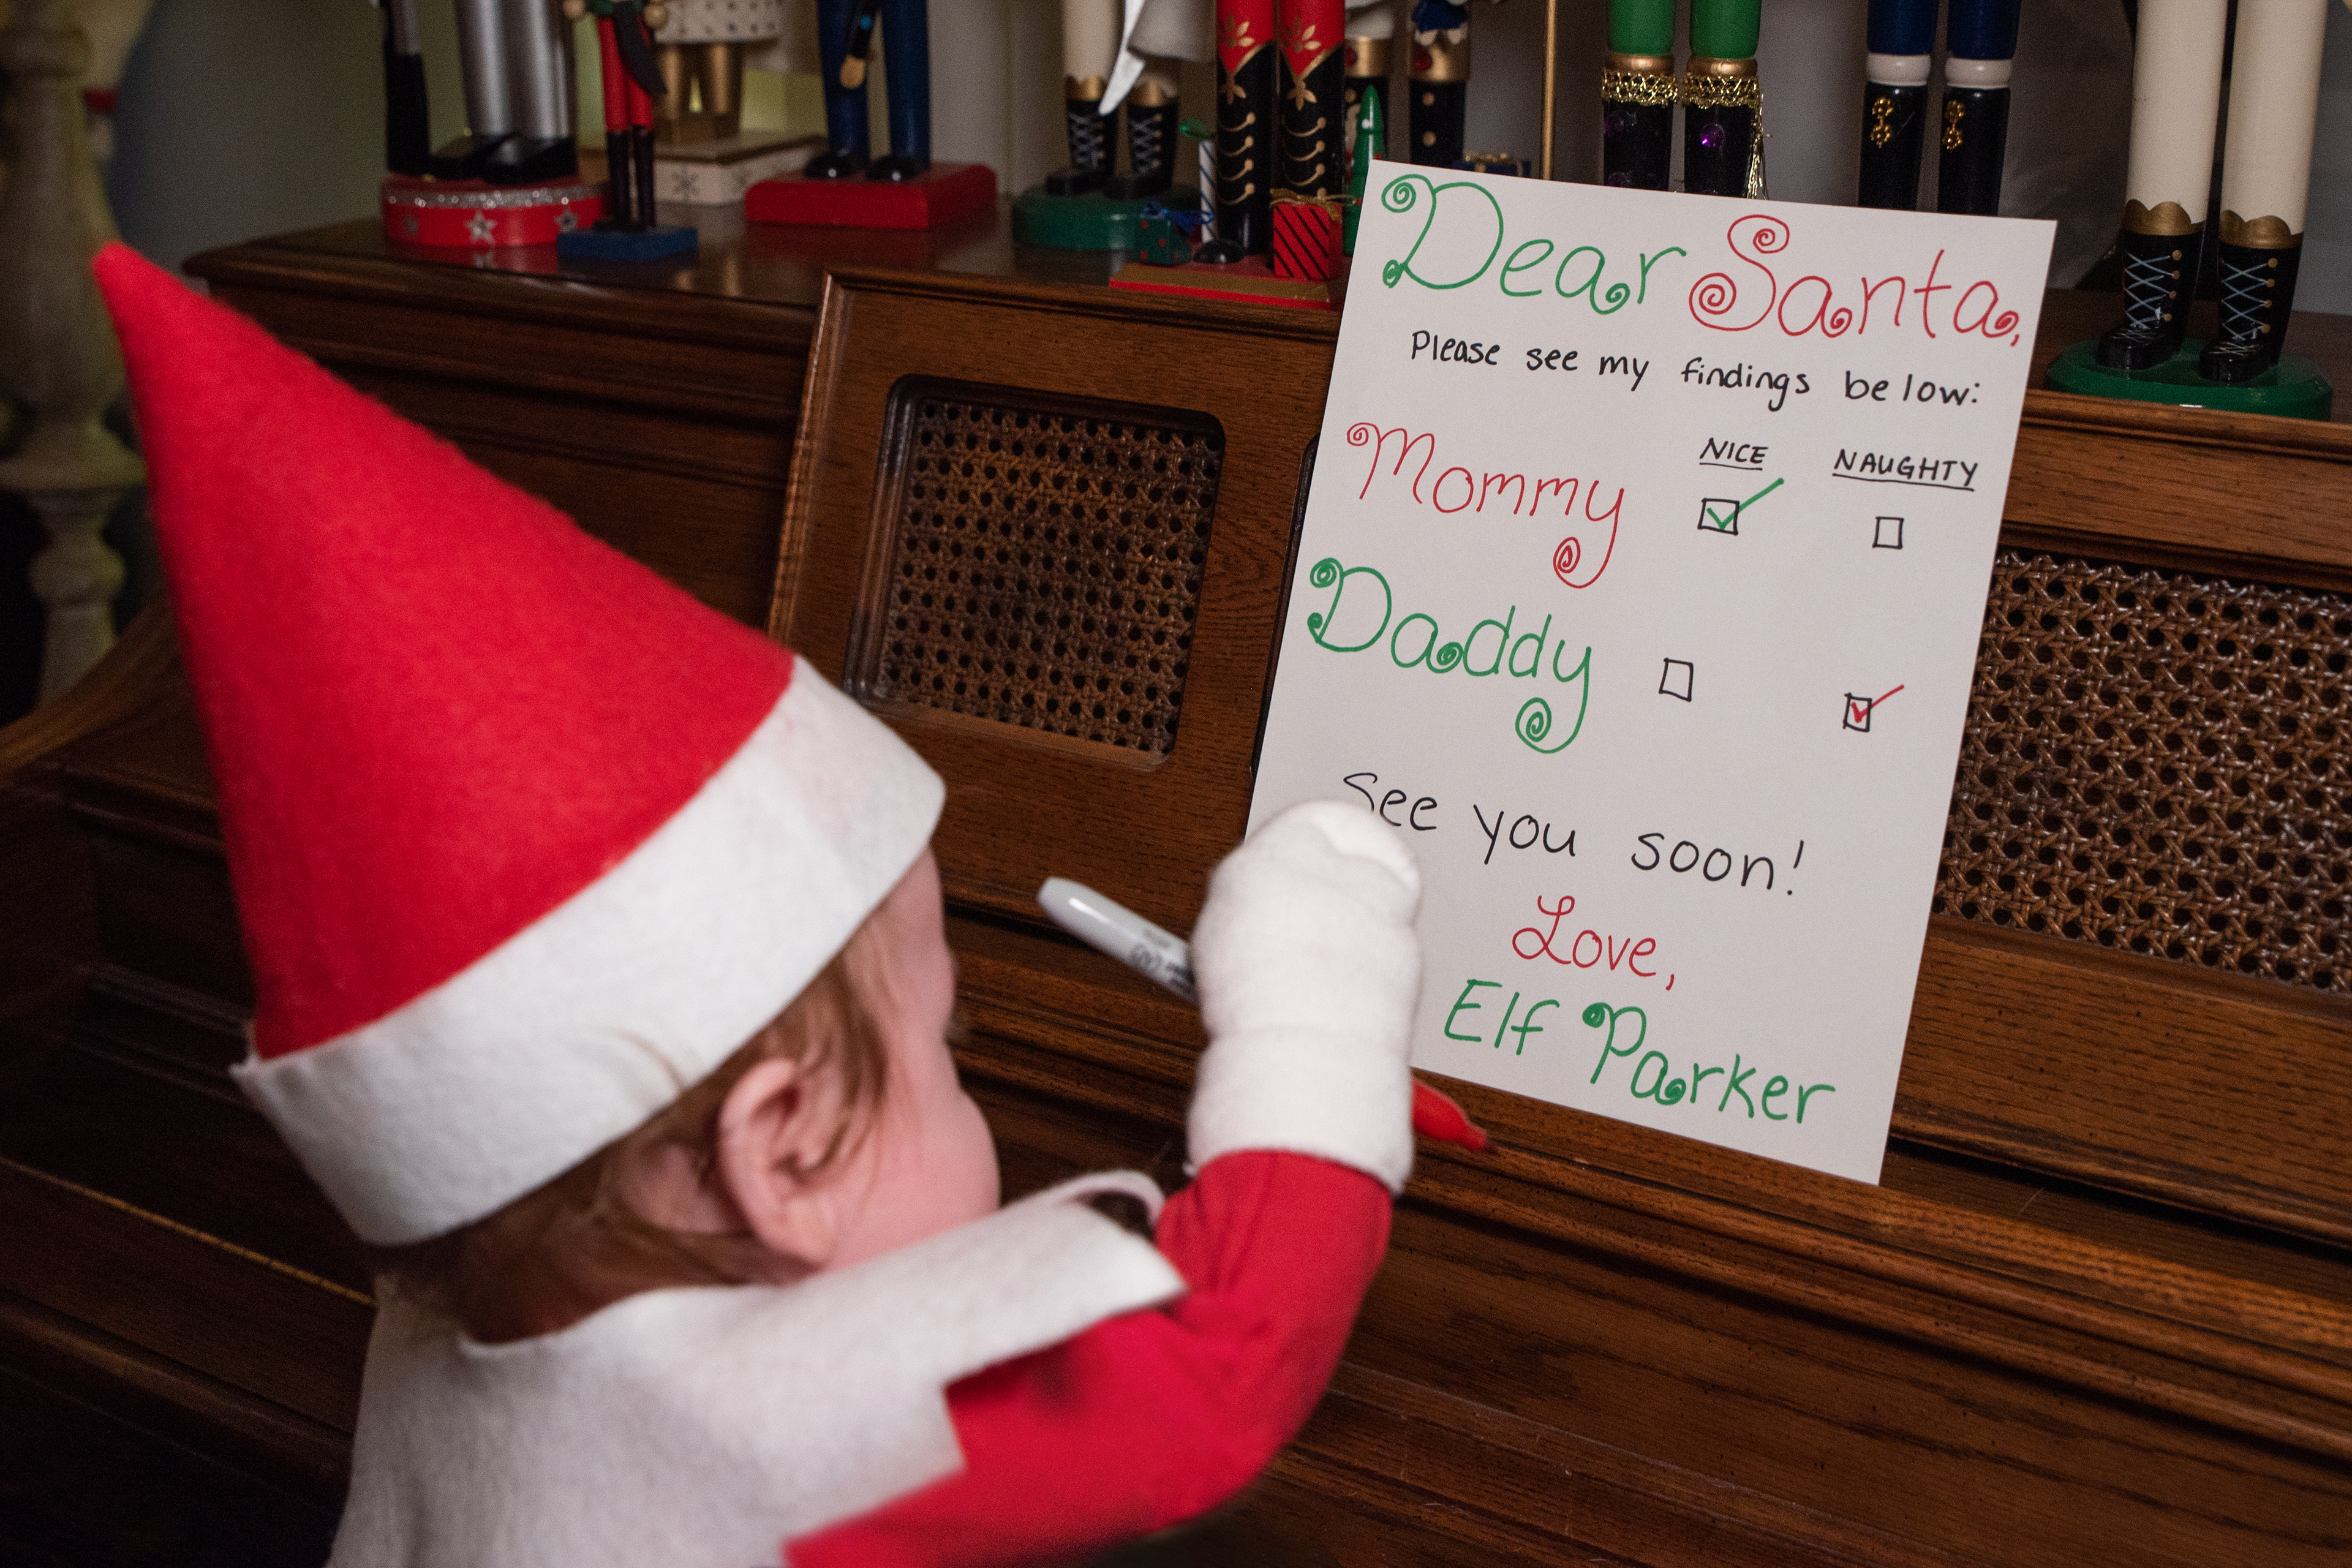 Dear Santa,
Please see my findings below:
NICE NAUGHTY
Mommy
Daddy
See you soon!
Love,
Elf Parker